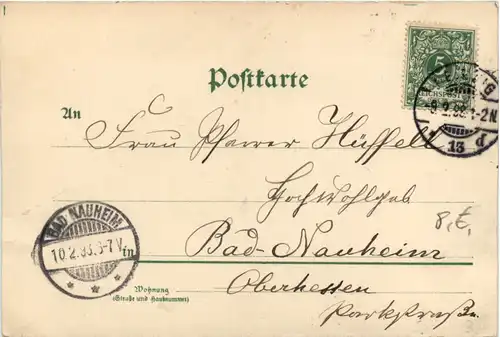 5
REICHSPOST
Postkarte
9.2.98.1-2N
13 d
An
Frau Pfarrer Hüffell
Hochwohlgeb
8,€,
BAD NAUHEIM
10.2.98.6-7V.
in
Bad-Nauheim
Oberhessen
Wohnung
(Straße und Hausnummer)
Parkstraße